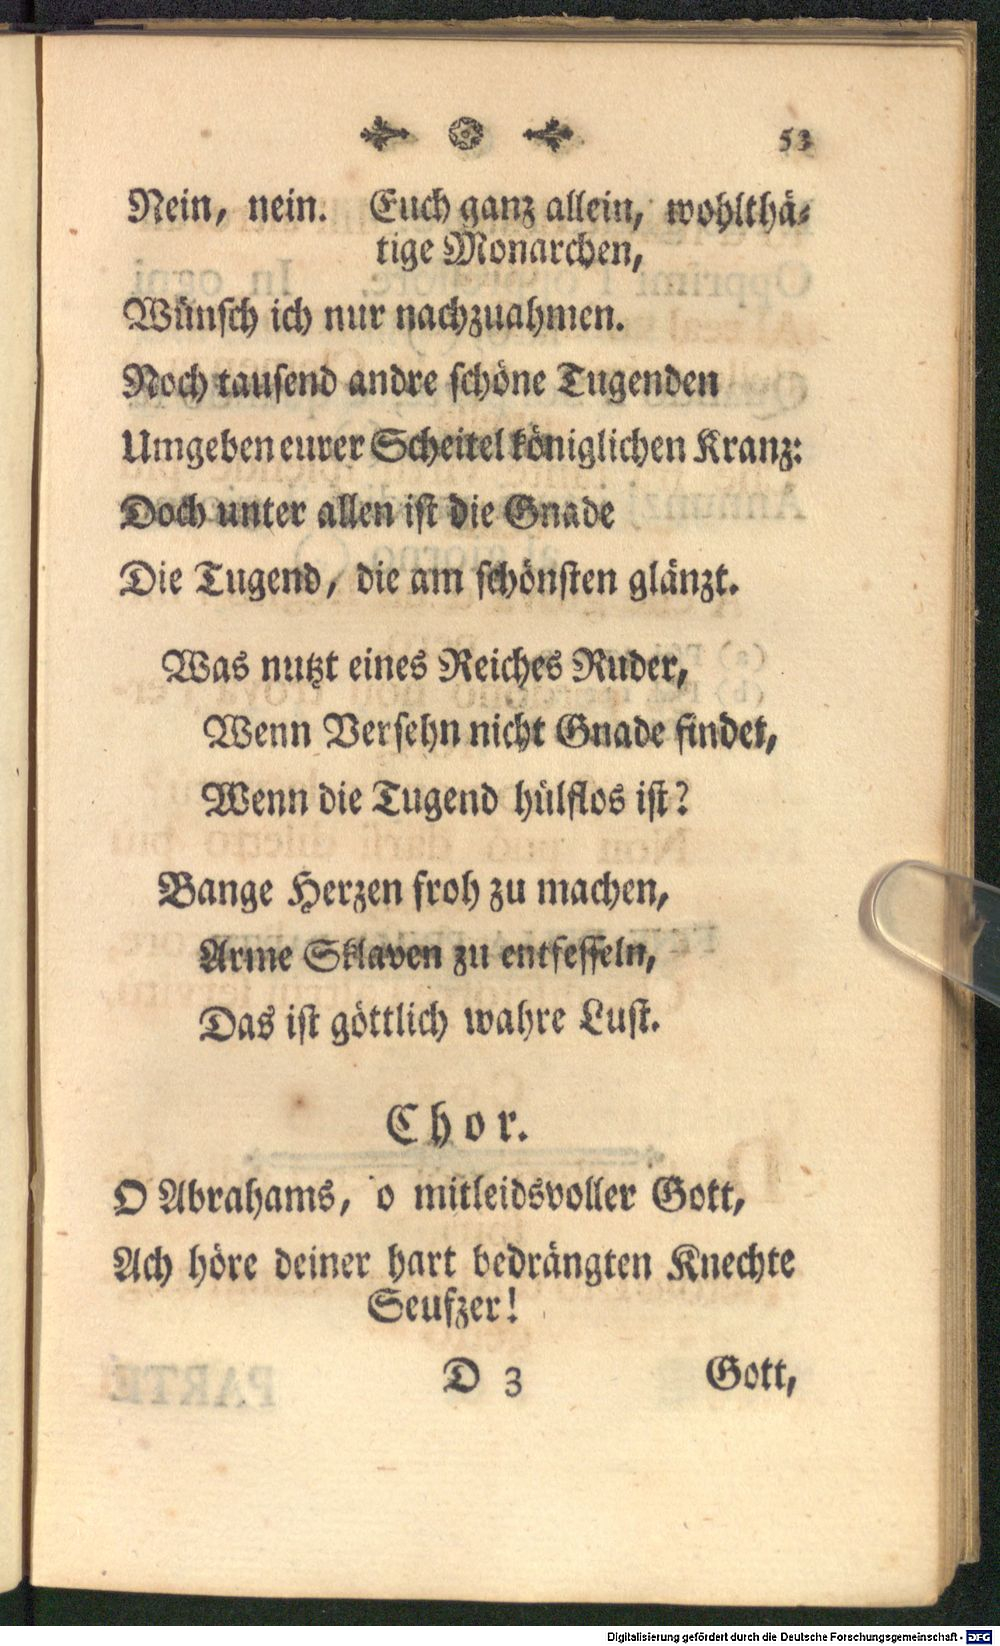 53
Nein, nein. Euch ganz allein, wohlthä-
tige Monarchen,
Wünsch ich nur nachzuahmen.
Noch tausend andre schöne Tugenden
Umgeben eurer Scheitel königlichen Kranz:
Doch unter allen ist die Gnade
Die Tugend, die am schönsten glänzt.
Was nutzt eines Reiches Ruder,
Wenn Versehn nicht Gnade findet,
Wenn die Tugend hülflos ist?
Bange Herzen froh zu machen,
Arme Sklaven zu entfesseln,
Das ist göttlich wahre Lust.
Chor.
O Abrahams, o mitleidsvoller Gott,
Ach höre deiner hart bedrängten Knechte
Seufzer!
D 3 Gott,
Digitalisierung gefördert durch die Deutsche Forschungsgemeinschaft - DFG